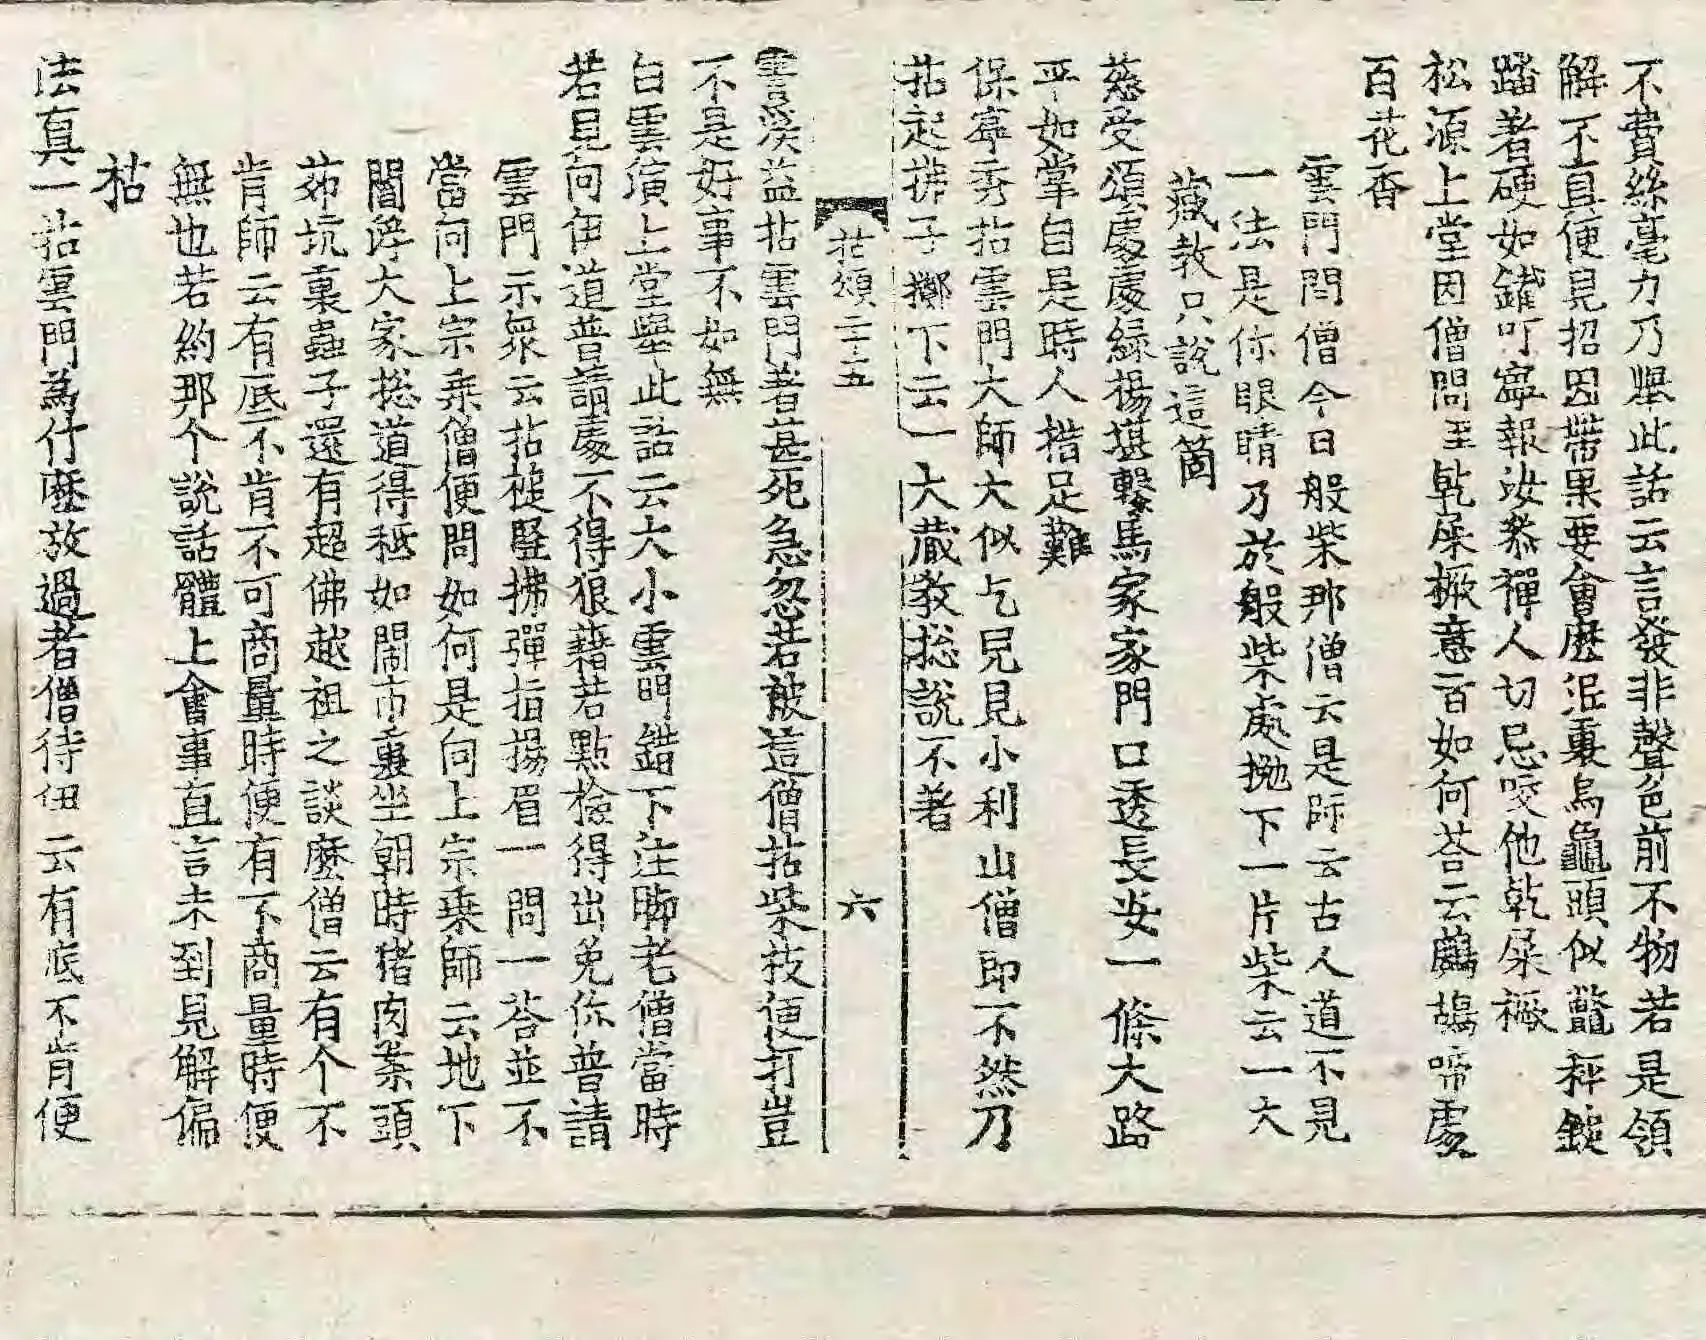 不費絲毫力乃擧此話云言發非聲色前不物若是領
解不直便見招因帶果要會麽泥裏烏龜頭似鼈秤錘
踏著硬如鐵叮寧報汝叅禪人切忌咬他乾屎橛
松源上堂因僧問至乾屎橛意旨如何荅云鷓鴣啼處
百花香
雲門問僧今日般柴那僧云是師云古人道不見
一法是你眼睛乃於般柴處拋下一片柴云一大
藏教只說這箇
慈受頌處處綠楊堪繫馬家家門口透長安一條大路
平如掌自是時人措足難
保寧秀拈雲門大師大似乞兒見小利山僧即不然乃
拈起拂子擲下云一大藏教捴說不著
拈頌二十五 六
雲溪益拈雲門著甚死急忽若被這僧拈柴枝便打豈
不是好事不如無
白雲演上堂擧此話云大小雲門錯下注脚老僧當時
若見向伊道普請處不得狼藉若點檢得出免你普請
雲門示衆云拈槌竪拂彈指揚眉一問一荅並不
當向上宗乘僧便問如何是向上宗乘師云地下
閻浮大家捴道得秪如鬧市裏坐朝時猪肉案頭
茆坑裏蟲子還有超佛越祖之談麽僧云有个不
肯師云有底不肯不可商量時便有不商量時便
無也若約那个說話體上會事直言未到見解偏
枯
法眞一拈雲門爲什麽放過者僧待伊云有底不肯便